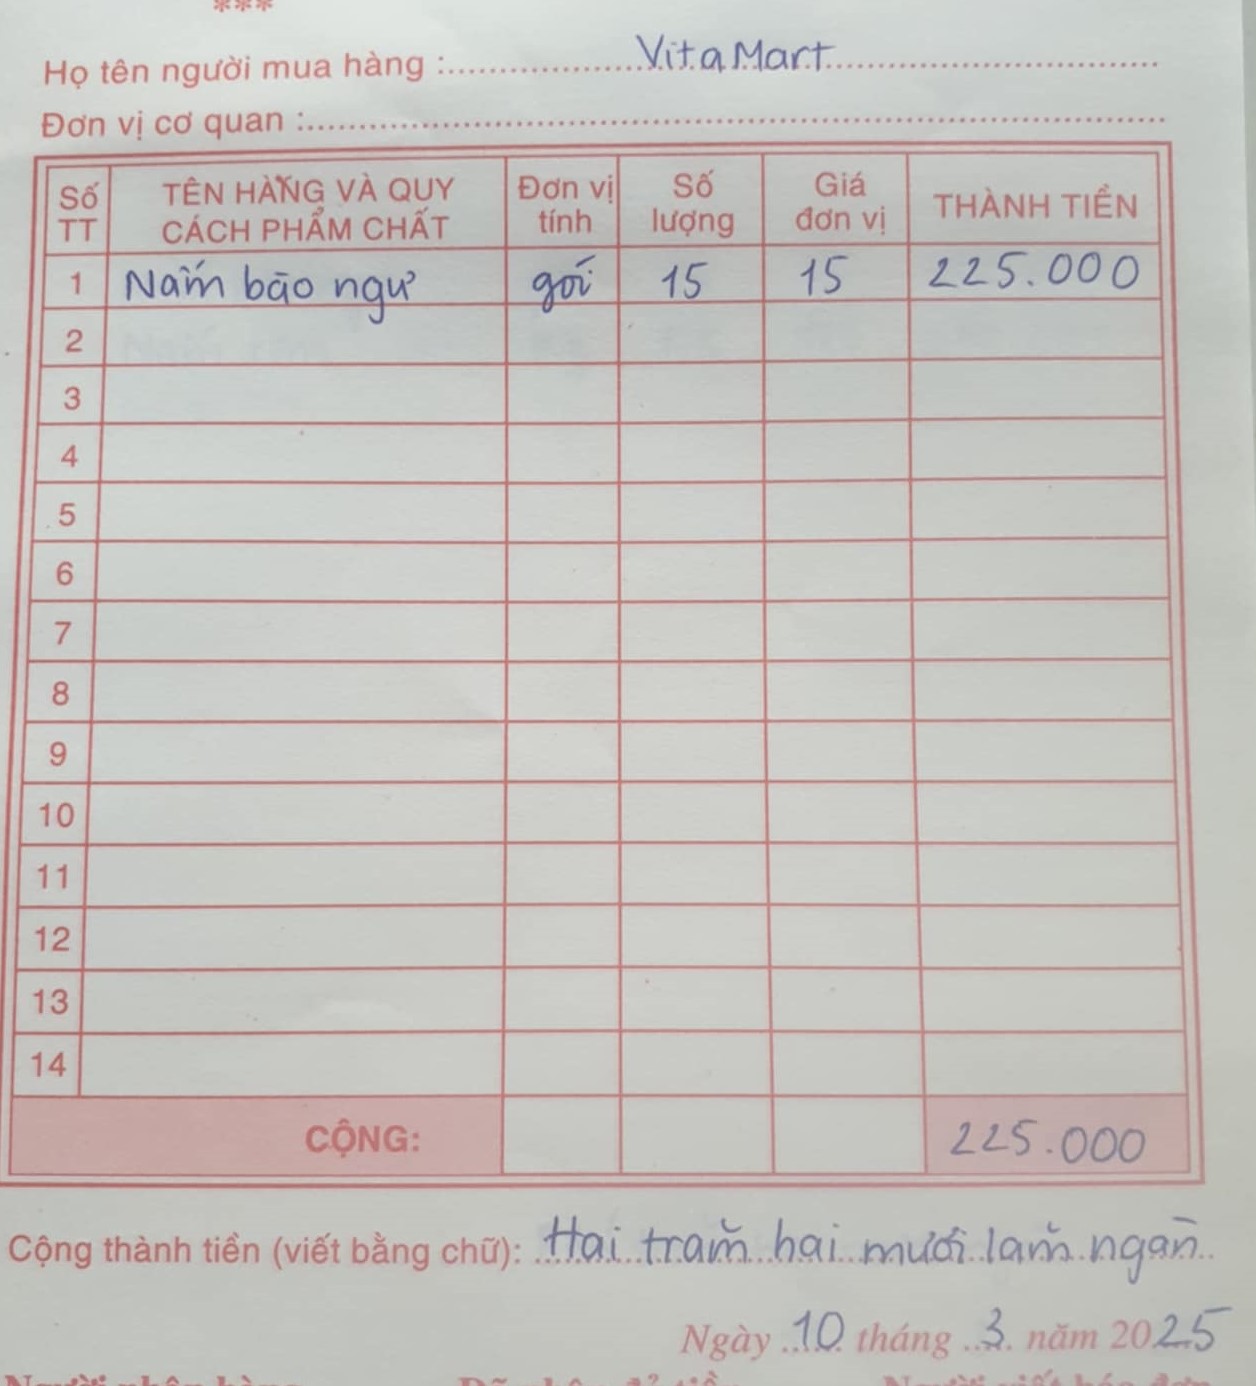 ***
Họ tên người mua hàng : Vita Mart
Đơn vị cơ quan :
Số TT TÊN HÀNG VÀ QUY CÁCH PHẨM CHẤT Đơn vị tính Số lượng Giá đơn vị THÀNH TIỀN
1 Nấm bão ngư gói 15 15 225.000
2
3
4
5
6
7
8
9
10
11
12
13
14
CỘNG: 225.000
Cộng thành tiền (viết bằng chữ): Hai trăm hai mươi lăm ngàn
Ngày 10 tháng 3 năm 2025